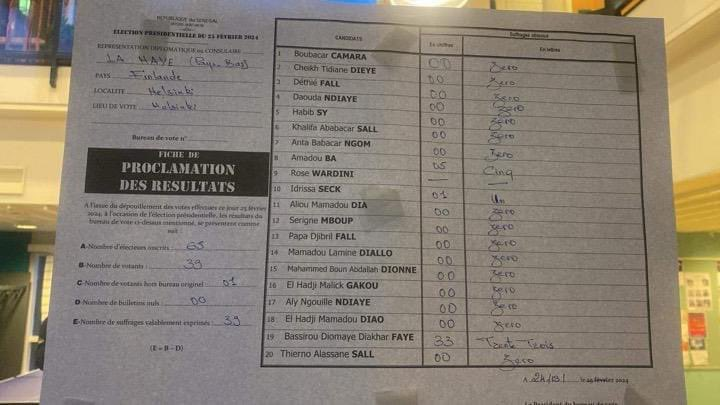 REPUBLIQUE du SENEGAL
ELECTION PRESIDENTIELLE DU 25 FÉVRIER 2024
REPRÉSENTATION DIPLOMATIQUE OU CONSULAIRE
LA HAYE (Pays Bas)
PAYS : Finlande
LOCALITE : Helsinki
LIEU DE VOTE : Helsinki
Bureau de vote n°
FICHE DE
PROCLAMATION
DES RESULTATS
A l'issue du dépouillement des votes effectués ce jour 25 février
2024, à l'occasion de l'élection présidentielle, les résultats du
bureau de vote ci-dessus mentionné, se présentent comme
suit :
A-Nombre d'électeurs inscrits : 65
B-Nombre de votants : 39
C-Nombre de votants hors bureau originel : 01
D-Nombre de bulletins nuls : 00
E-Nombre de suffrages valablement exprimés : 39
(E = B – D)
CANDIDATS Suffrages obtenus
En chiffres En lettres
1 Boubacar CAMARA 00 zero
2 Cheikh Tidiane DIEYE 00 zero
3 Déthié FALL 00 zero
4 Daouda NDIAYE 00 zero
5 Habib SY 00 zero
6 Khalifa Ababacar SALL 00 zero
7 Anta Babacar NGOM 00 zero
8 Amadou BA 05 Cinq
9 Rose WARDINI — —
10 Idrissa SECK 01 Un
11 Aliou Mamadou DIA 00 zero
12 Serigne MBOUP 00 zero
13 Papa Djibril FALL 00 zero
14 Mamadou Lamine DIALLO 00 zero
15 Mahammed Boun Abdallah DIONNE 00 zero
16 El Hadji Malick GAKOU 00 zero
17 Aly Ngouille NDIAYE 00 zero
18 El Hadji Mamadou DIAO 00 zero
19 Bassirou Diomaye Diakhar FAYE 33 Trente Trois
20 Thierno Alassane SALL 00 zero
A 24/03/ le 25 février 2024
Le Président du bureau de vote